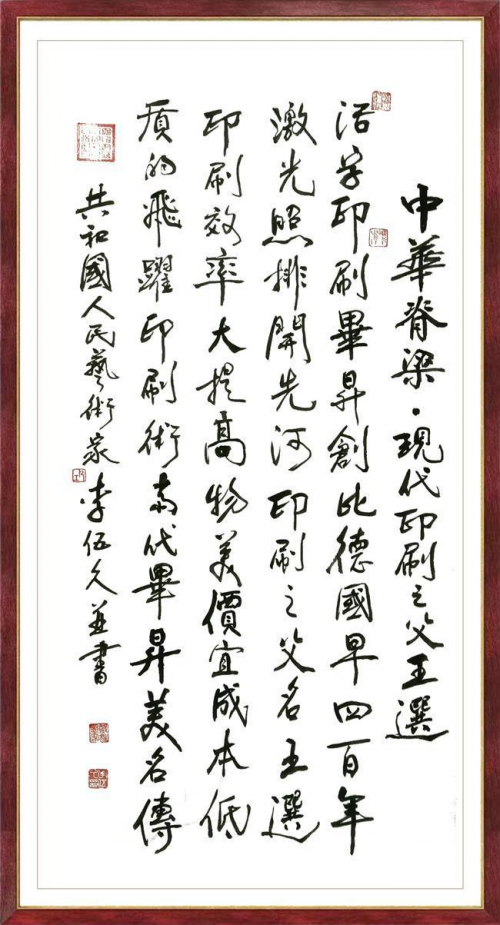 中華脊梁·現代印刷之父王選
活字印刷畢昇創比德國早四百年
激光照排開先河印刷之父名王選
印刷效率大提高物美價宜成本低
质的飛躍印刷術當代畢昇美名傳
共和國人民藝術家李伍久並書